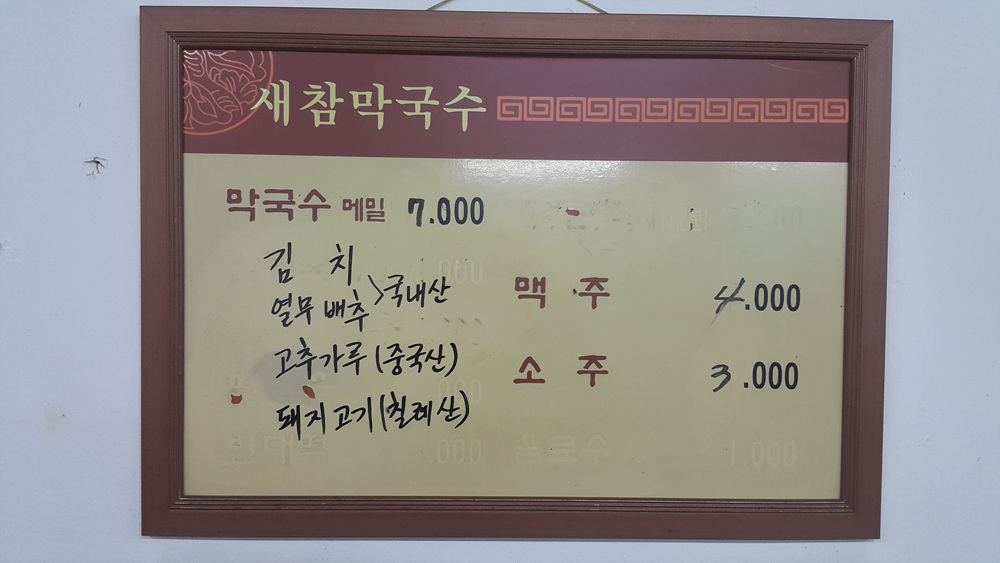 새참막국수
막국수 메밀 7.000
김 치
열무 배추 > 국내산
고추가루 (중국산)
돼지고기 (칠레산)
맥 주 4.000
소 주 3.000
빈대떡 .000
음료수 1.000